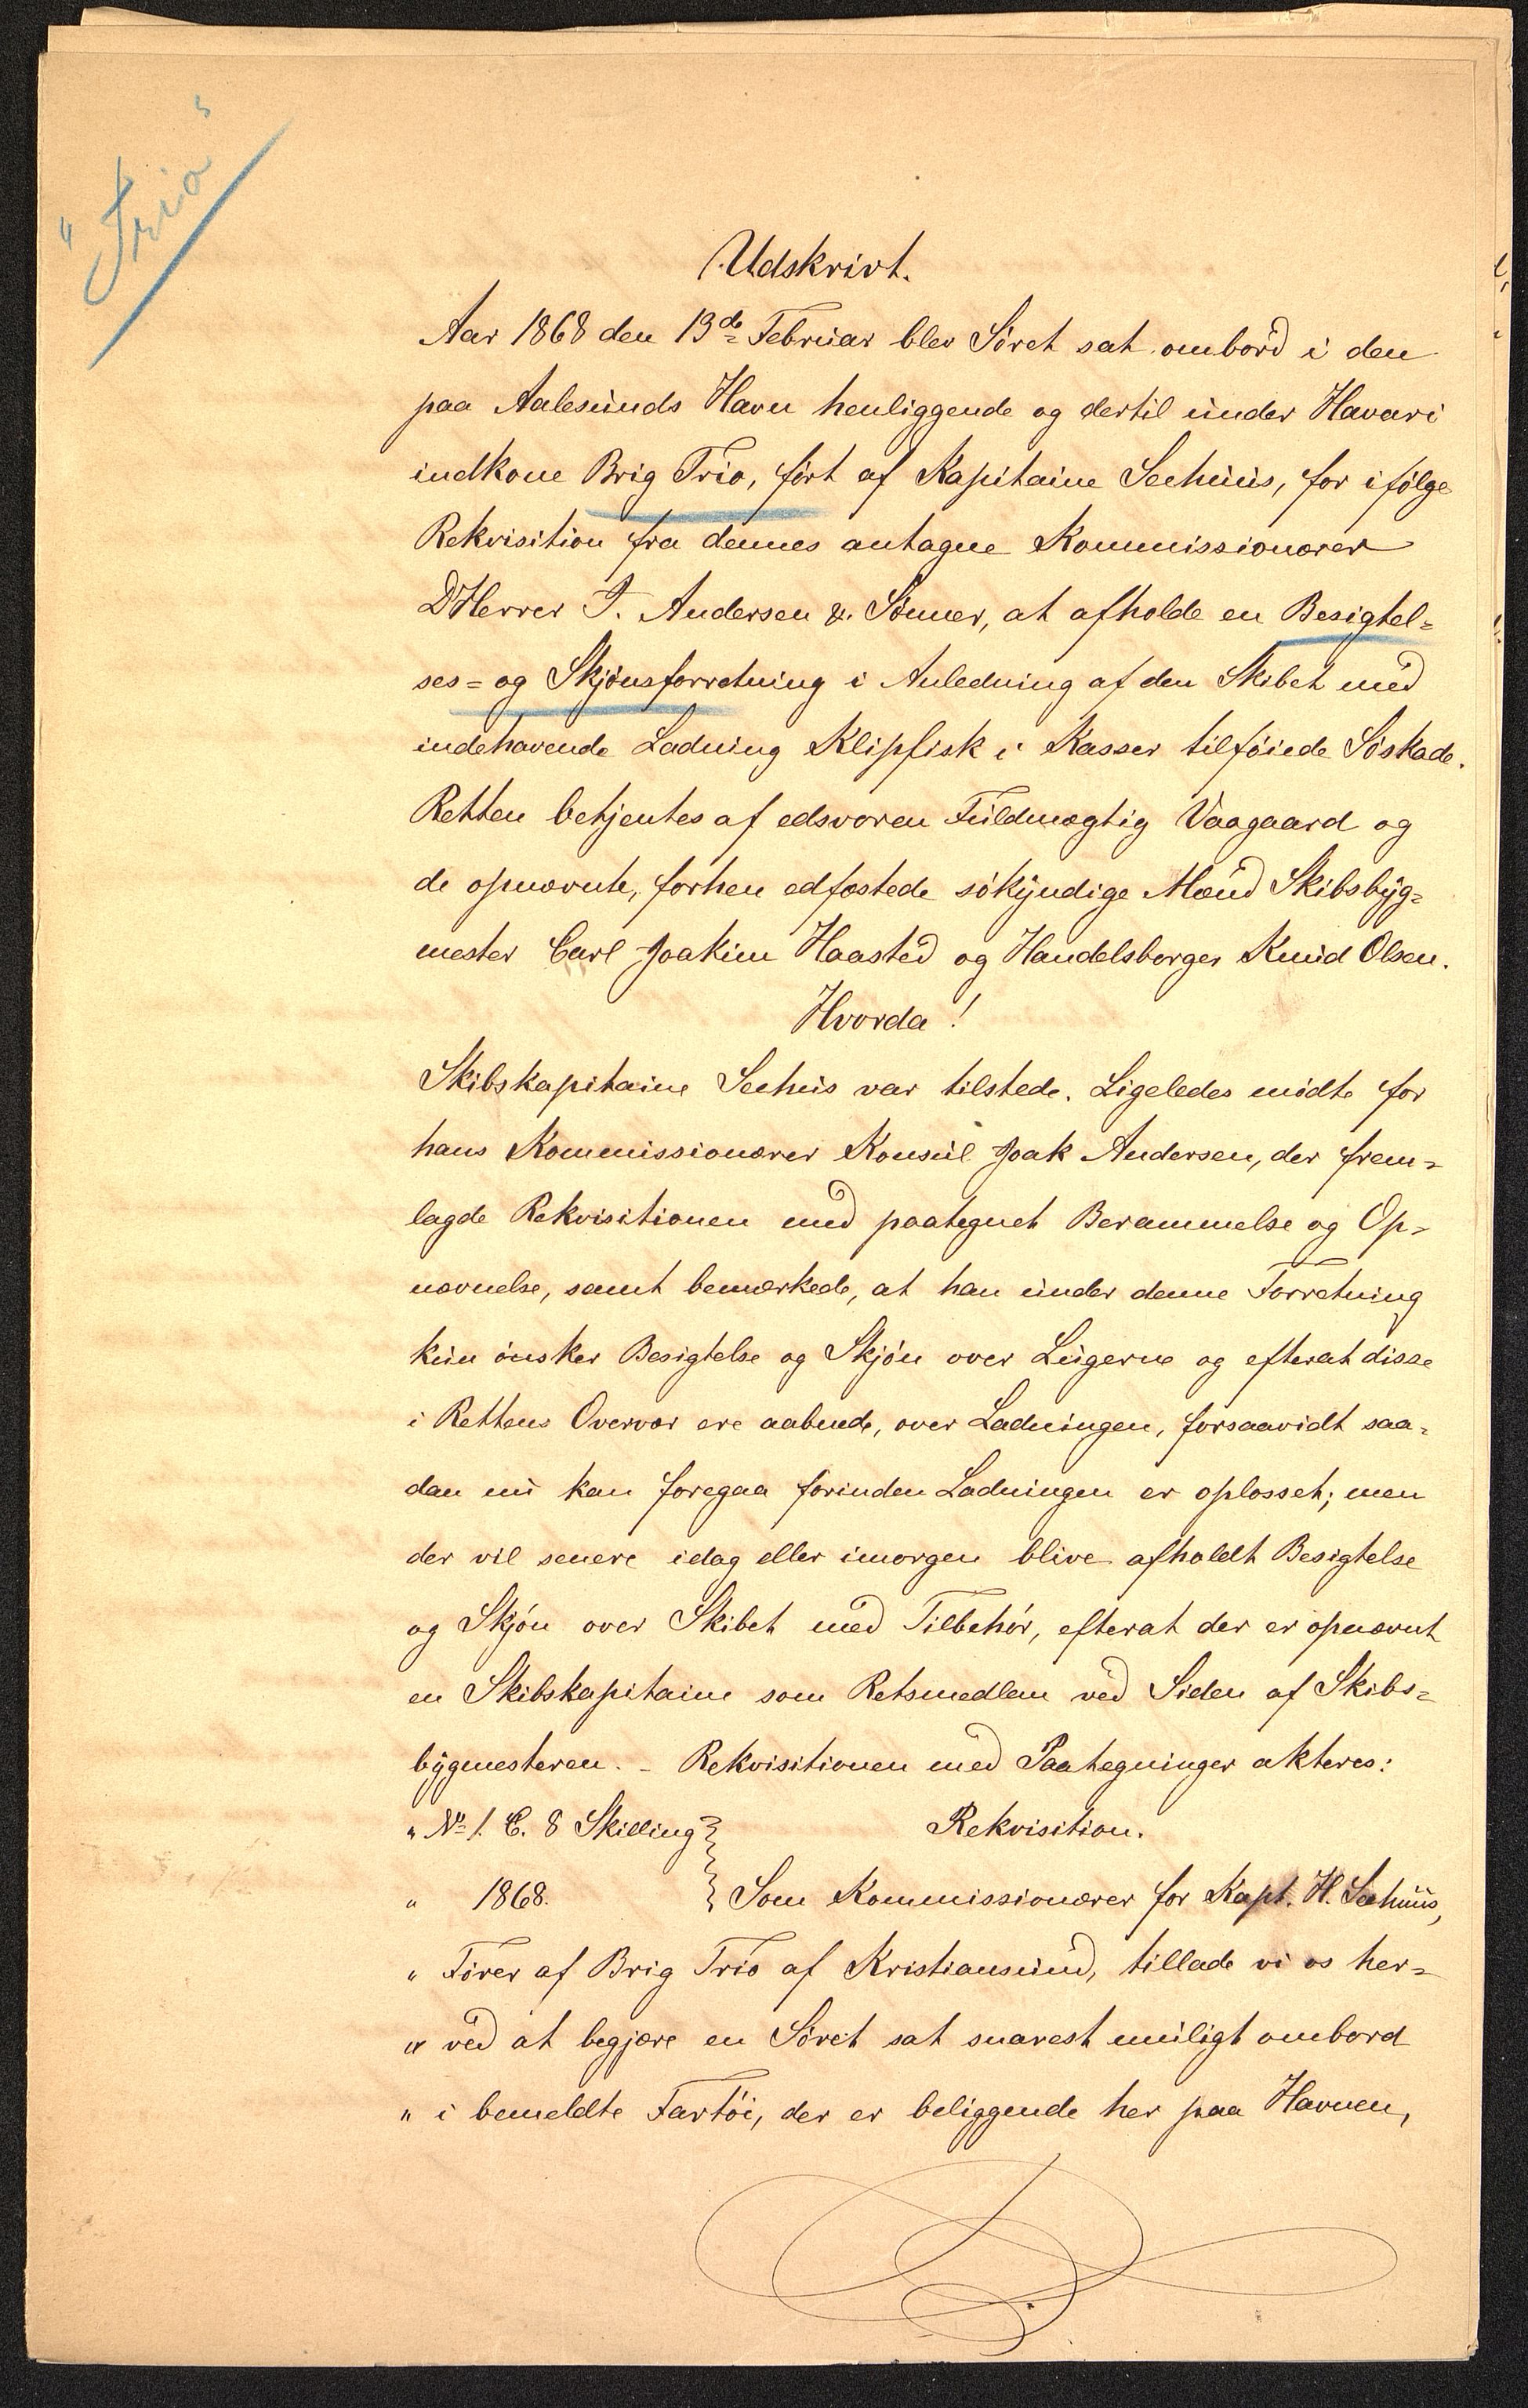 "Trio"
Udskrivt.
Aar 1868 den 13de Februar blev Söret sat ombord i den
paa Aalesunds Havn henliggende og dertil under Havari
indkone Brig Trio, fört af Kapitaine Seehuus, for ifölge
Rekvisition fra dennes antagne Kommissionærer
DHerrer J. Andersen &. Sönner, at afholde en Besigtel=
ses= og Skjönsforretning i Anledning af den Skibet med
indehavende Ladning Klipfisk i Kasser tilföiede Söskade.
Retten betjentes af edsvoren Fuldmægtig Vaagaard og
de opnævnte, forhen edfæstede sökyndige Mænd Skibsbyg=
mester Carl Joakim Haasted og Handelsborger Knud Olsen.
Hvorda!
Skibskapitaine Seehus var tilstede. Ligeledes mödte for
hans Kommissionærer Konsul Joak Andersen, der frem=
lagde Rekvisitionen med paategnet Berammelse og Op=
nævnelse, samt bemærkede, at han under denne Forretning
kun önsker Besigtelse og Skjön over Lugerne og efterat disse
i Rettens Overvær ere aabnede, over Ladningen, forsaavidt saa=
dan nu kan foregaa forinden Ladningen er oplosset; men
der vil senere idag eller imorgen blive afholdt Besigtelse
og Skjön over Skibet med Tilbehör, efterat der er opnævnt
en Skibskapitaine som Retsmedlem ved Siden af Skibs=
bygmesteren. - Rekvisitionen med Paategninger akteres:
" No 1. C. 8 Skilling Rekvisition.
" 1868. Som Kommissionærer for Kapt. H. Seehuus,
" Förer af Brig Trio af Kristiansund, tillade vi os her=
" ved at begjære en Söret sat snarest muligt ombord
" i bemeldte Fartöi, der er beliggende her paa Havnen,